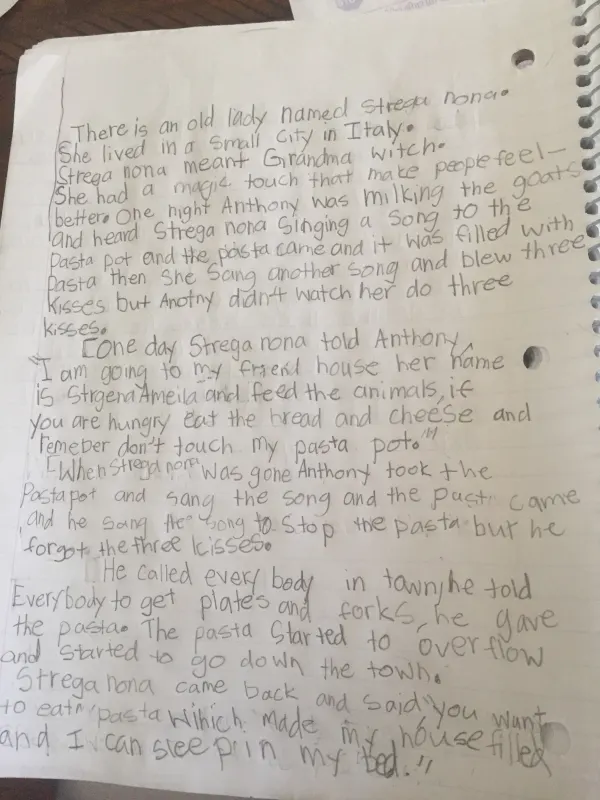 There is an old lady named Strega nona.
She lived in a small city in Italy.
Strega nona meant Grandma witch.
She had a magic touch that make people feel-
better. One night Anthony was milking the goats
and heard Strega nona Singing a song to the
Pasta pot and the pasta came and it was filled with
Pasta then She Sang another song and blew three
kisses but Anotny didn't watch her do three
kisses.
[One day Strega nona told Anthony,
"I am going to my friend house her name
is StrgenaAmeila and feed the animals, if
you are hungry eat the bread and cheese and
remeber don't touch my pasta pot."
[When Strega nona was gone Anthony took the
Pasta pot and sang the song and the Past came
and he sang the song to stop the pasta but he
forgot the three kisses.
He called every body in town, he told
Everybody to get plates and forks, he gave
the pasta. The pasta Started to overflow
and started to go down the town.
Strega nona came back and said "you want
to eat pasta Wihich made my house filled
and I can sleep in my bed."